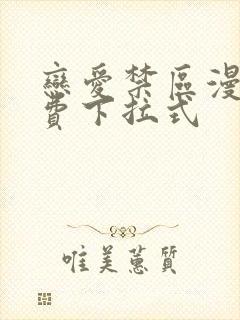 戀愛禁區漫
費下拉式
唯美蕙質